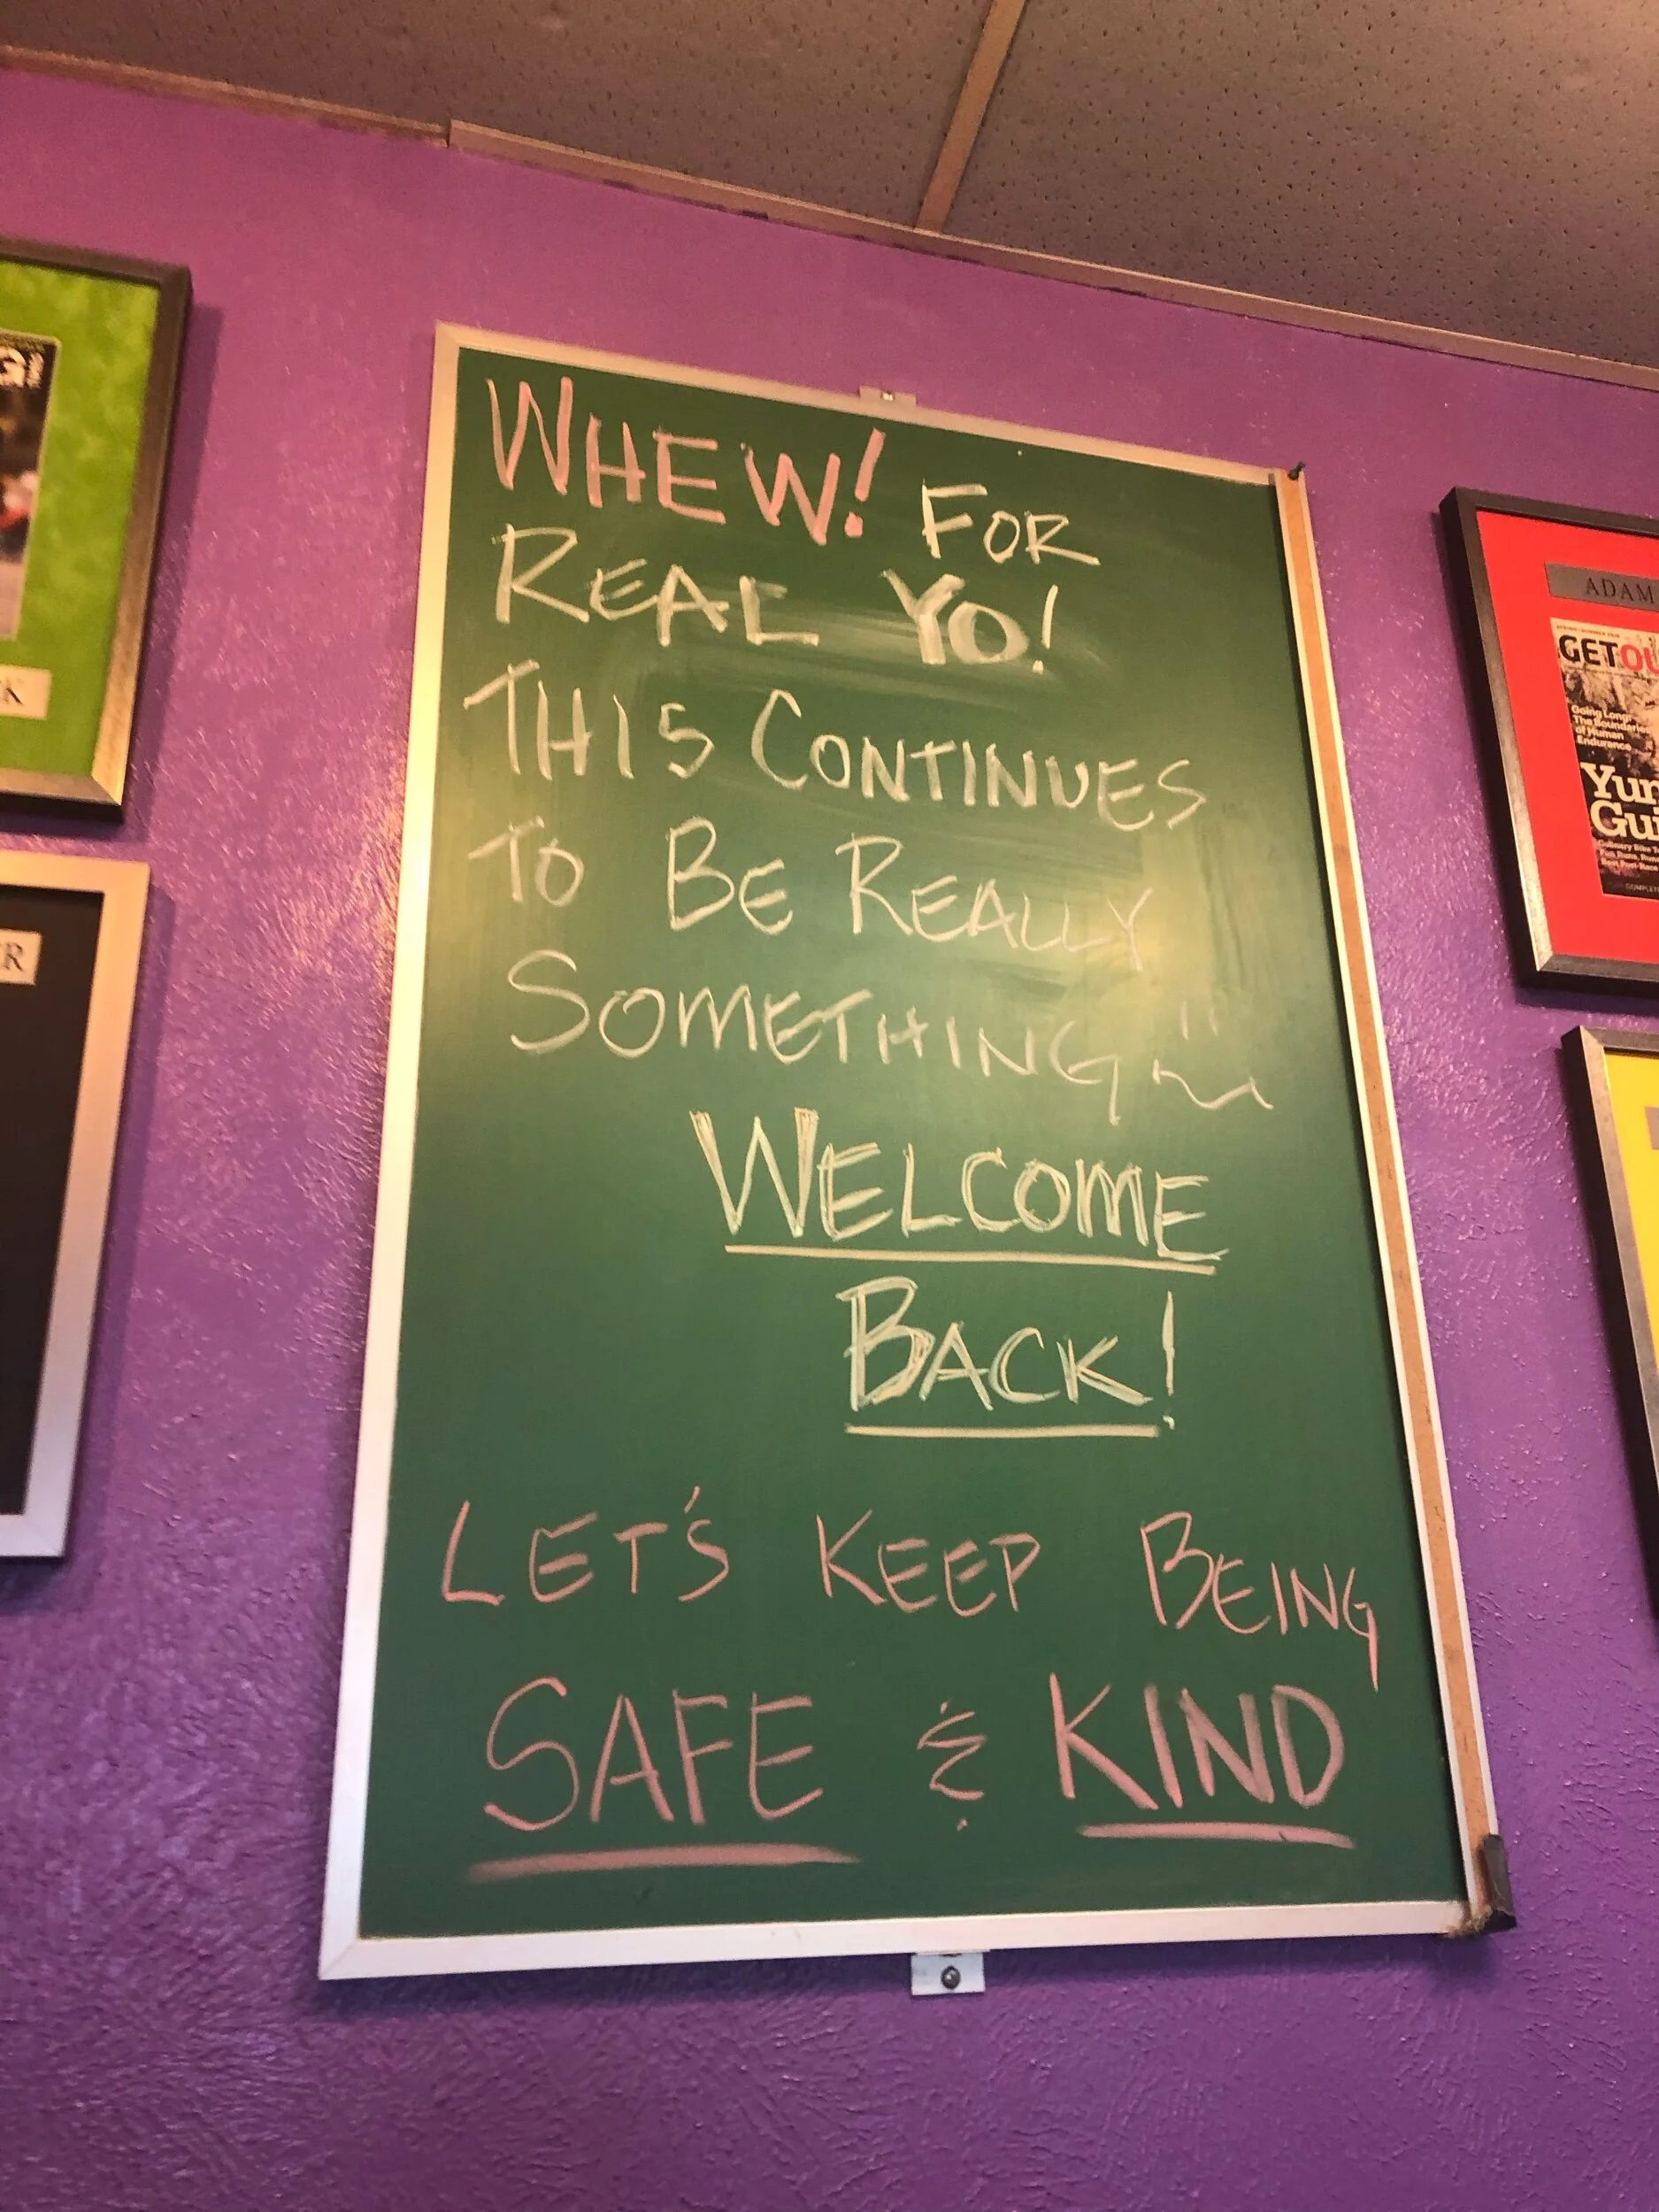 WHEW! FOR
REAL YO!
THIS CONTINUES
TO BE REALLY
SOMETHING
WELCOME
BACK!
LET'S KEEP BEING
SAFE & KIND
K
R
ADAM
GETOU
Going Long:
The Boundaries
of Human
Endurance
Yum
Gui